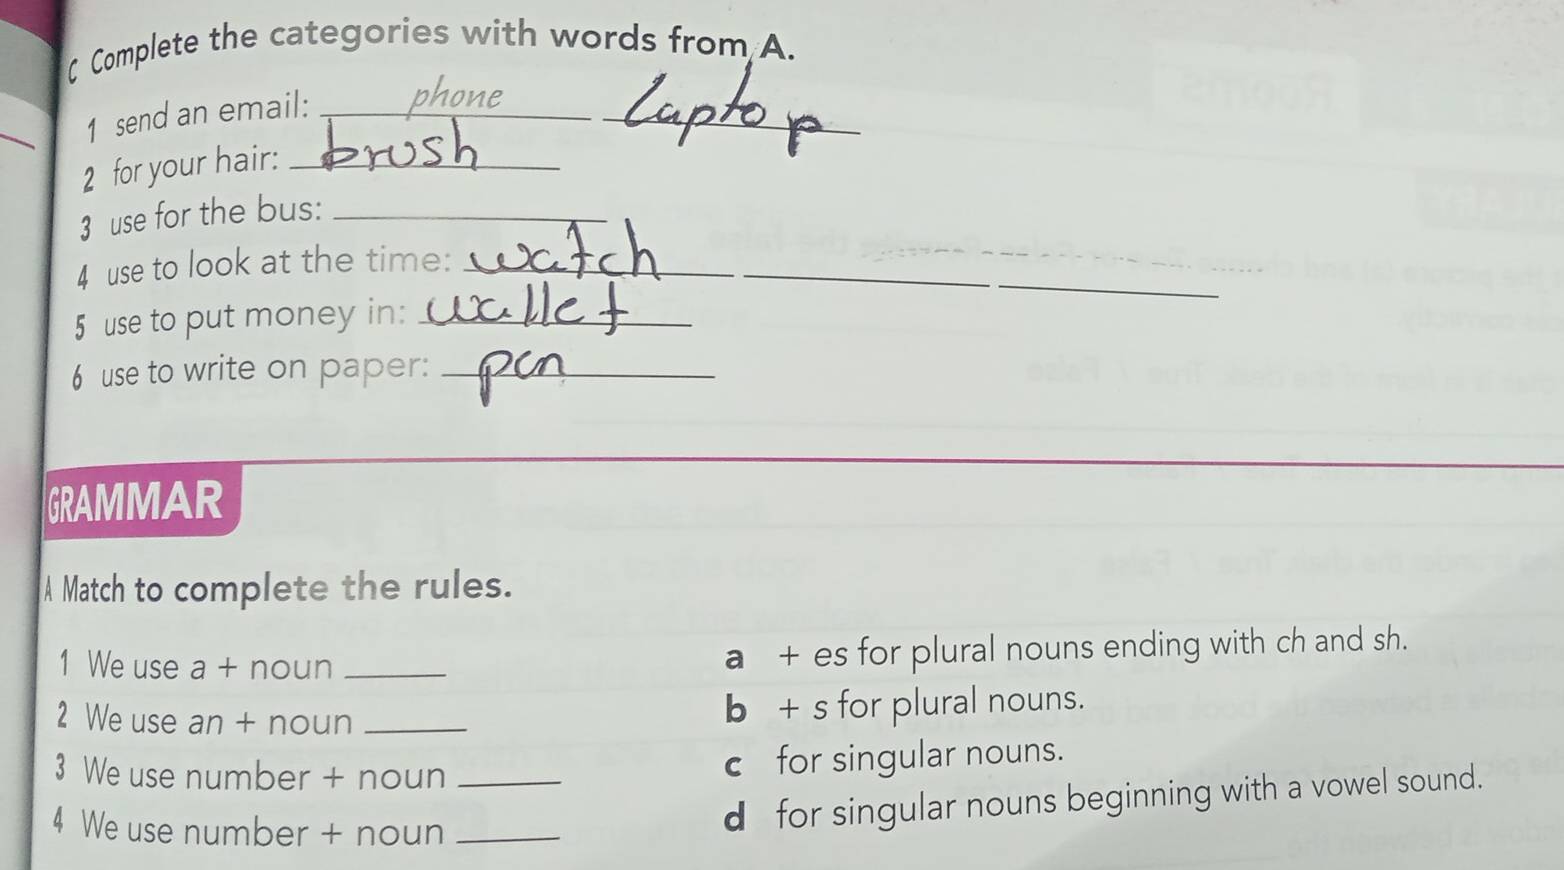 C Complete the categories with words from A.
1 send an email: phone Laptop
2 for your hair: brush
3 use for the bus:
4 use to look at the time: watch
5 use to put money in: wallet
6 use to write on paper: pen
GRAMMAR
A Match to complete the rules.
1 We use a + noun
2 We use an + noun
3 We use number + noun
4 We use number + noun
a + es for plural nouns ending with ch and sh.
b + s for plural nouns.
c for singular nouns.
d for singular nouns beginning with a vowel sound.